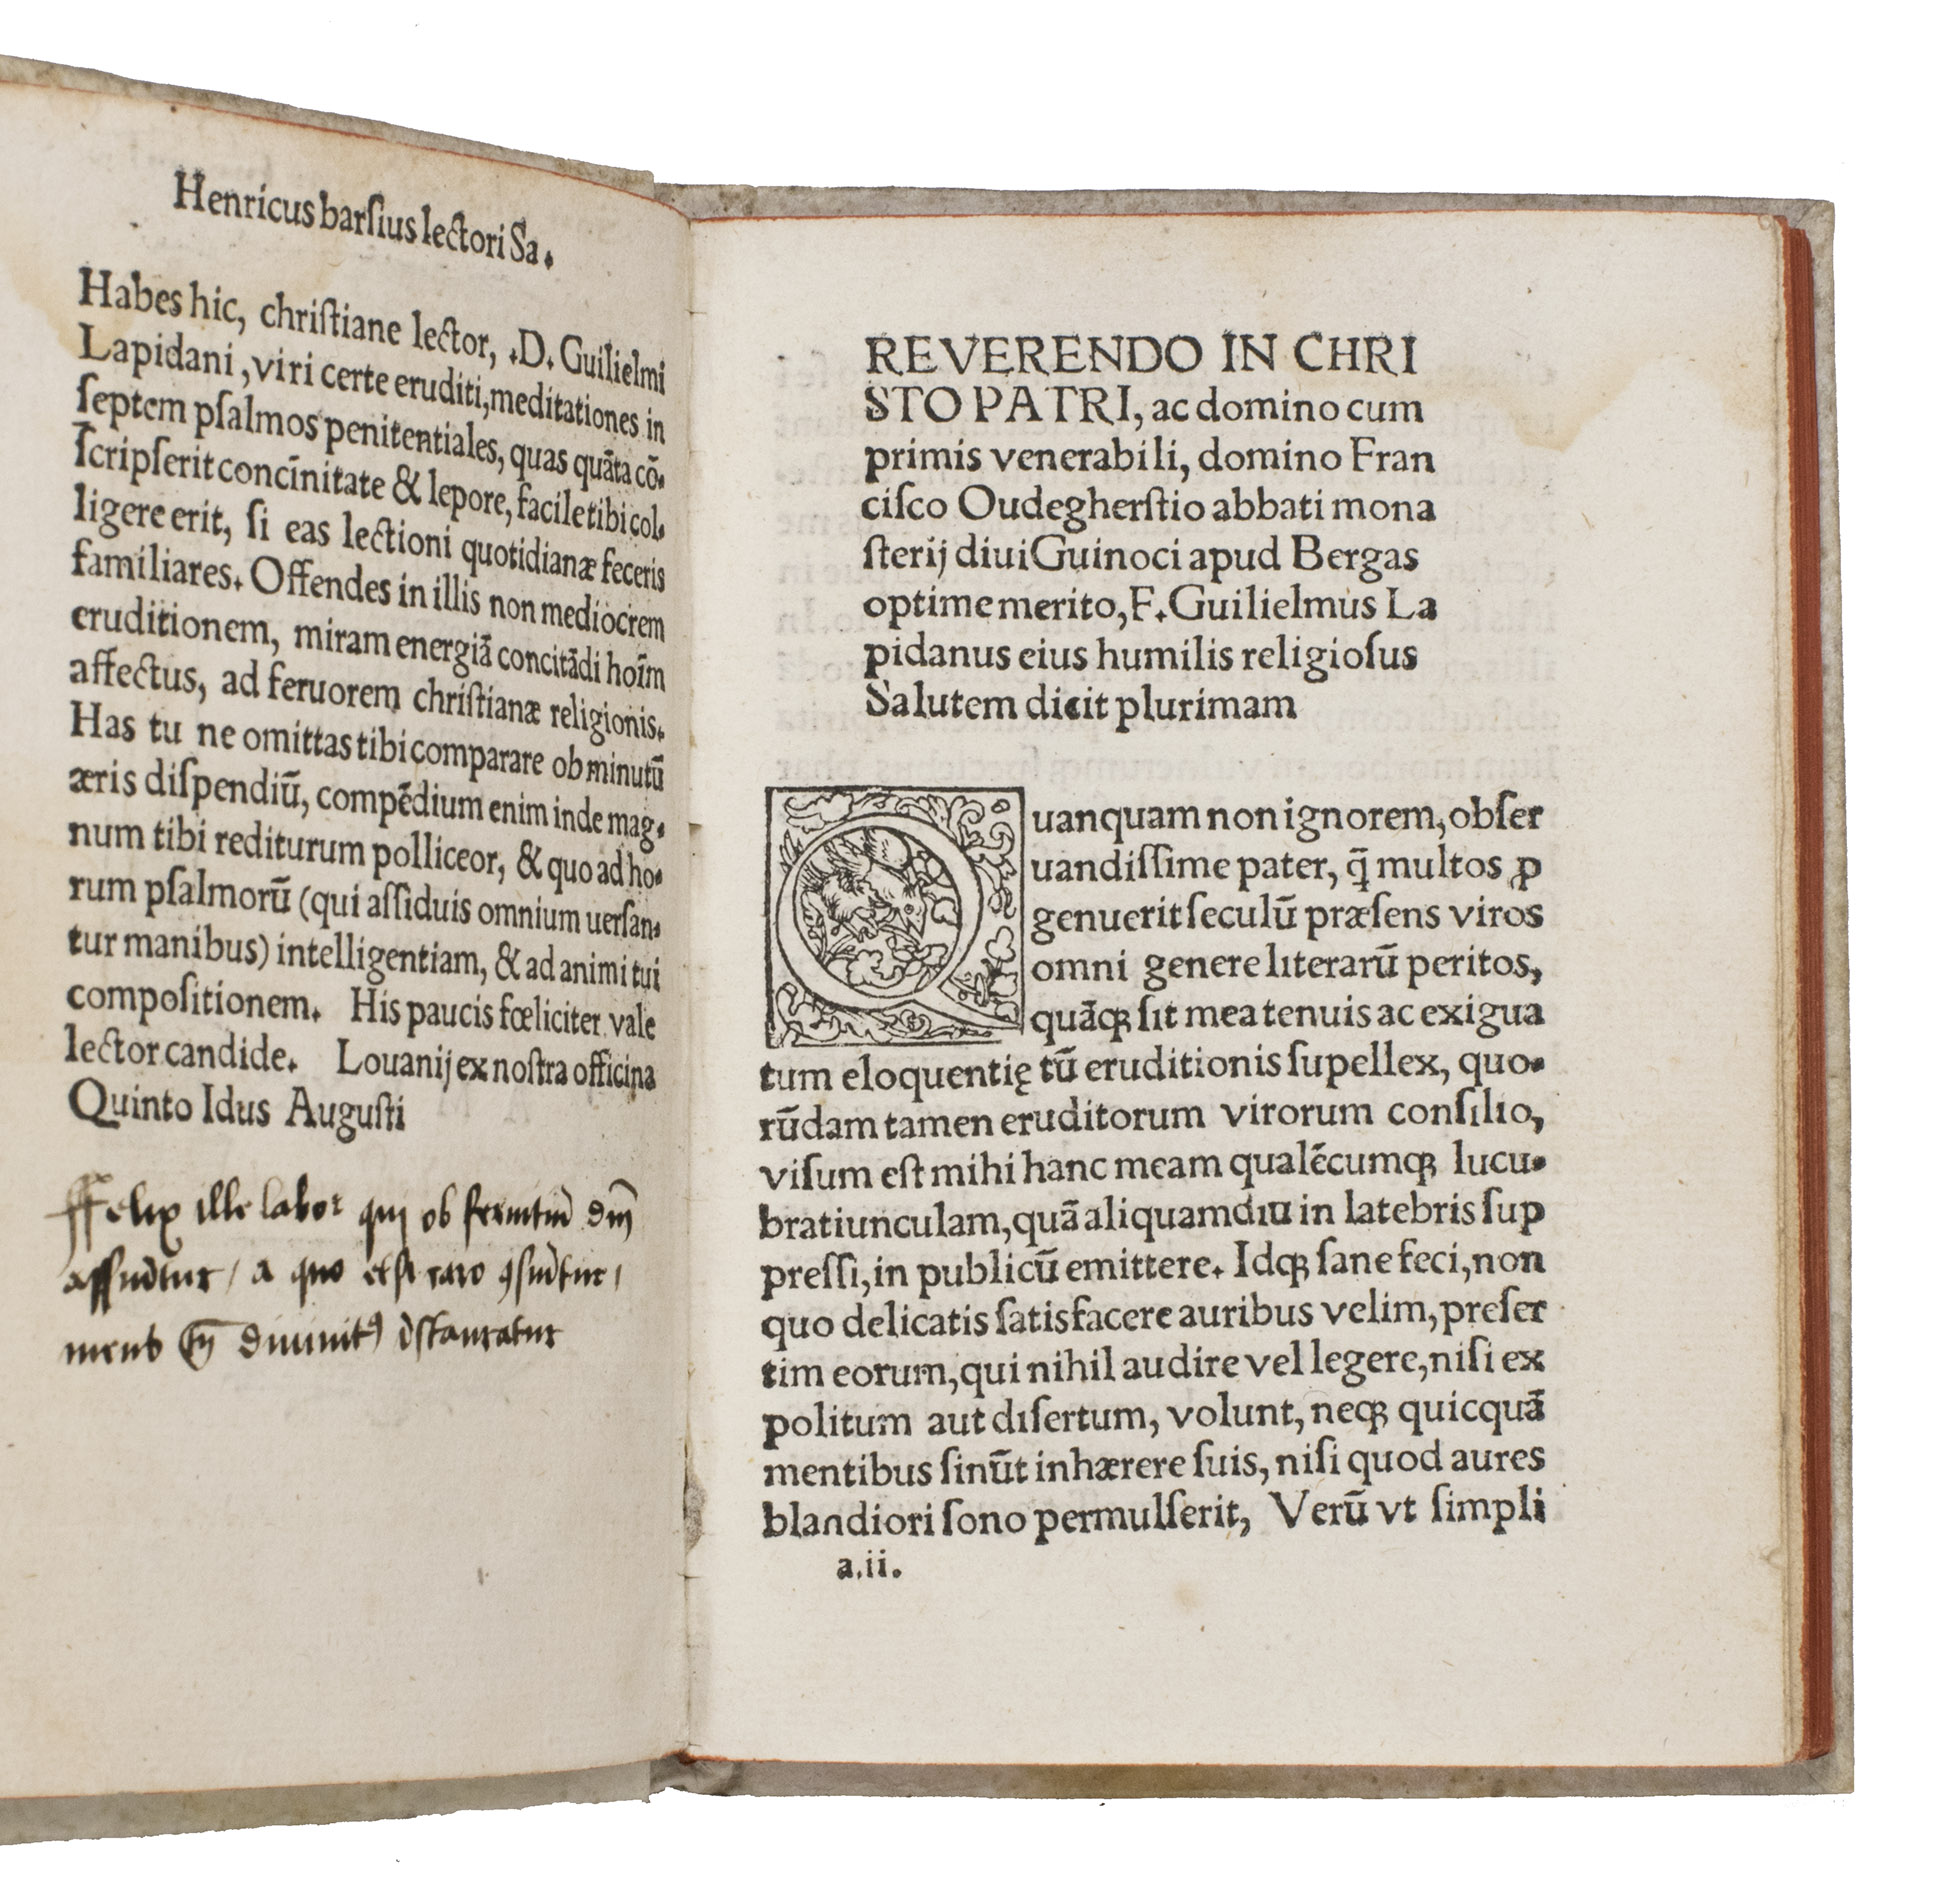 Henricus barſius lectori Sa.
Habes hic, chriſtiane lector, .D. Guilielmi
Lapidani, viri certe eruditi, meditationes in
ſeptem pſalmos penitentiales, quas quãta cõ-
ſcripſerit concĩnitate & lepore, facile tibi col-
ligere erit, ſi eas lectioni quotidianæ feceris
familiares. Offendes in illis non mediocrem
eruditionem, miram energiã concitãdi hoĩm
affectus, ad feruorem chriſtianæ religionis.
Has tu ne omittas tibi comparare ob minutũ
æris diſpendiũ, compẽdium enim inde mag-
num tibi rediturum polliceor, & quo ad ho-
rum pſalmorũ (qui aſſiduis omnium uerſan-
tur manibus) intelligentiam, & ad animi tui
compoſitionem. His paucis fœliciter vale
lector candide. Louanij ex noſtra officina
Quinto Idus Auguſti
ffelix ille labor qui ob
a quo etſi raro
REVERENDO IN CHRI
STO PATRI, ac domino cum
primis venerabili, domino Fran
ciſco Oudegherſtio abbati mona
ſterij diui Guinoci apud Bergas
optime merito, F. Guilielmus La
pidanus eius humilis religioſus
Salutem dicit plurimam
Quanquam non ignorem, obſer
uandiſſime pater, q̃ multos ꝓ
genuerit ſeculũ præſens viros
omni genere literarũ peritos,
quãꝗ ſit mea tenuis ac exigua
tum eloquentię tũ eruditionis ſupellex, quo-
rũdam tamen eruditorum virorum conſilio,
viſum eſt mihi hanc meam qualẽcumꝗ lucu-
bratiunculam, quã aliquamdiu in latebris ſup
preſſi, in publicũ emittere. Idꝗ ſane feci, non
quo delicatis ſatisfacere auribus velim, preſer
tim eorum, qui nihil audire vel legere, niſi ex
politum aut diſertum, volunt, neꝗ quicquã
mentibus ſinũt inhærere ſuis, niſi quod aures
blandiori ſono permulſerit, Verũ vt ſimpli
a.ii.